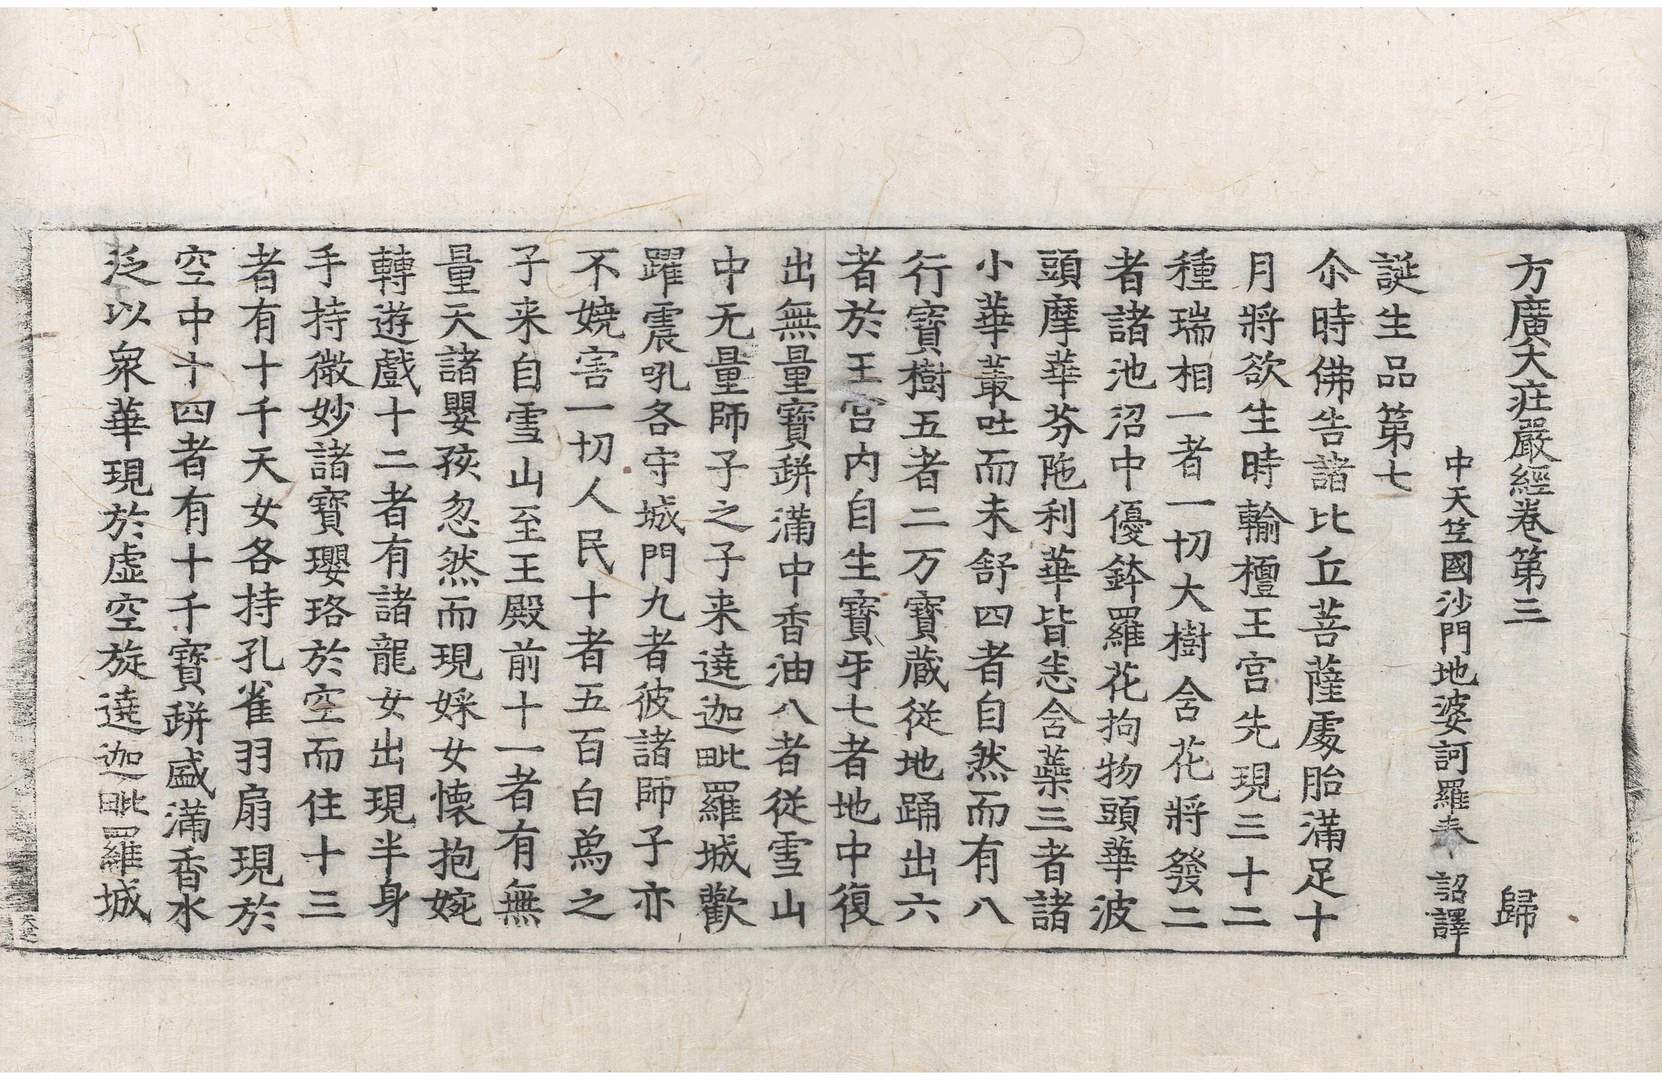 方廣大莊嚴經卷第三 歸
中天竺國沙門地婆訶羅奉 詔譯
誕生品第七
尒時佛告諸比丘菩薩處胎滿足十
月將欲生時輸檀王宮先現三十二
種瑞相一者一切大樹含花將發二
者諸池沼中優鉢羅花拘物頭華波
頭摩華芬陁利華皆悉含蘂三者諸
小華叢吐而未舒四者自然而有八
行寶樹五者二万寶蔵従地踊出六
者於王宮内自生寶牙七者地中復
出無量寶缾滿中香油八者従雪山
中无量師子之子来遶迦毗羅城歡
躍震吼各守城門九者彼諸師子亦
不嬈害一切人民十者五百白爲之
子来自雪山至王殿前十一者有無
量天諸嬰孩忽然而現婇女懐抱婉
轉遊戲十二者有諸龍女出現半身
手持微妙諸寶瓔珞於空而住十三
者有十千天女各持孔雀羽扇現於
空中十四者有十千寶缾盛滿香水
泛以衆華現於虛空旋遶迦毗羅城